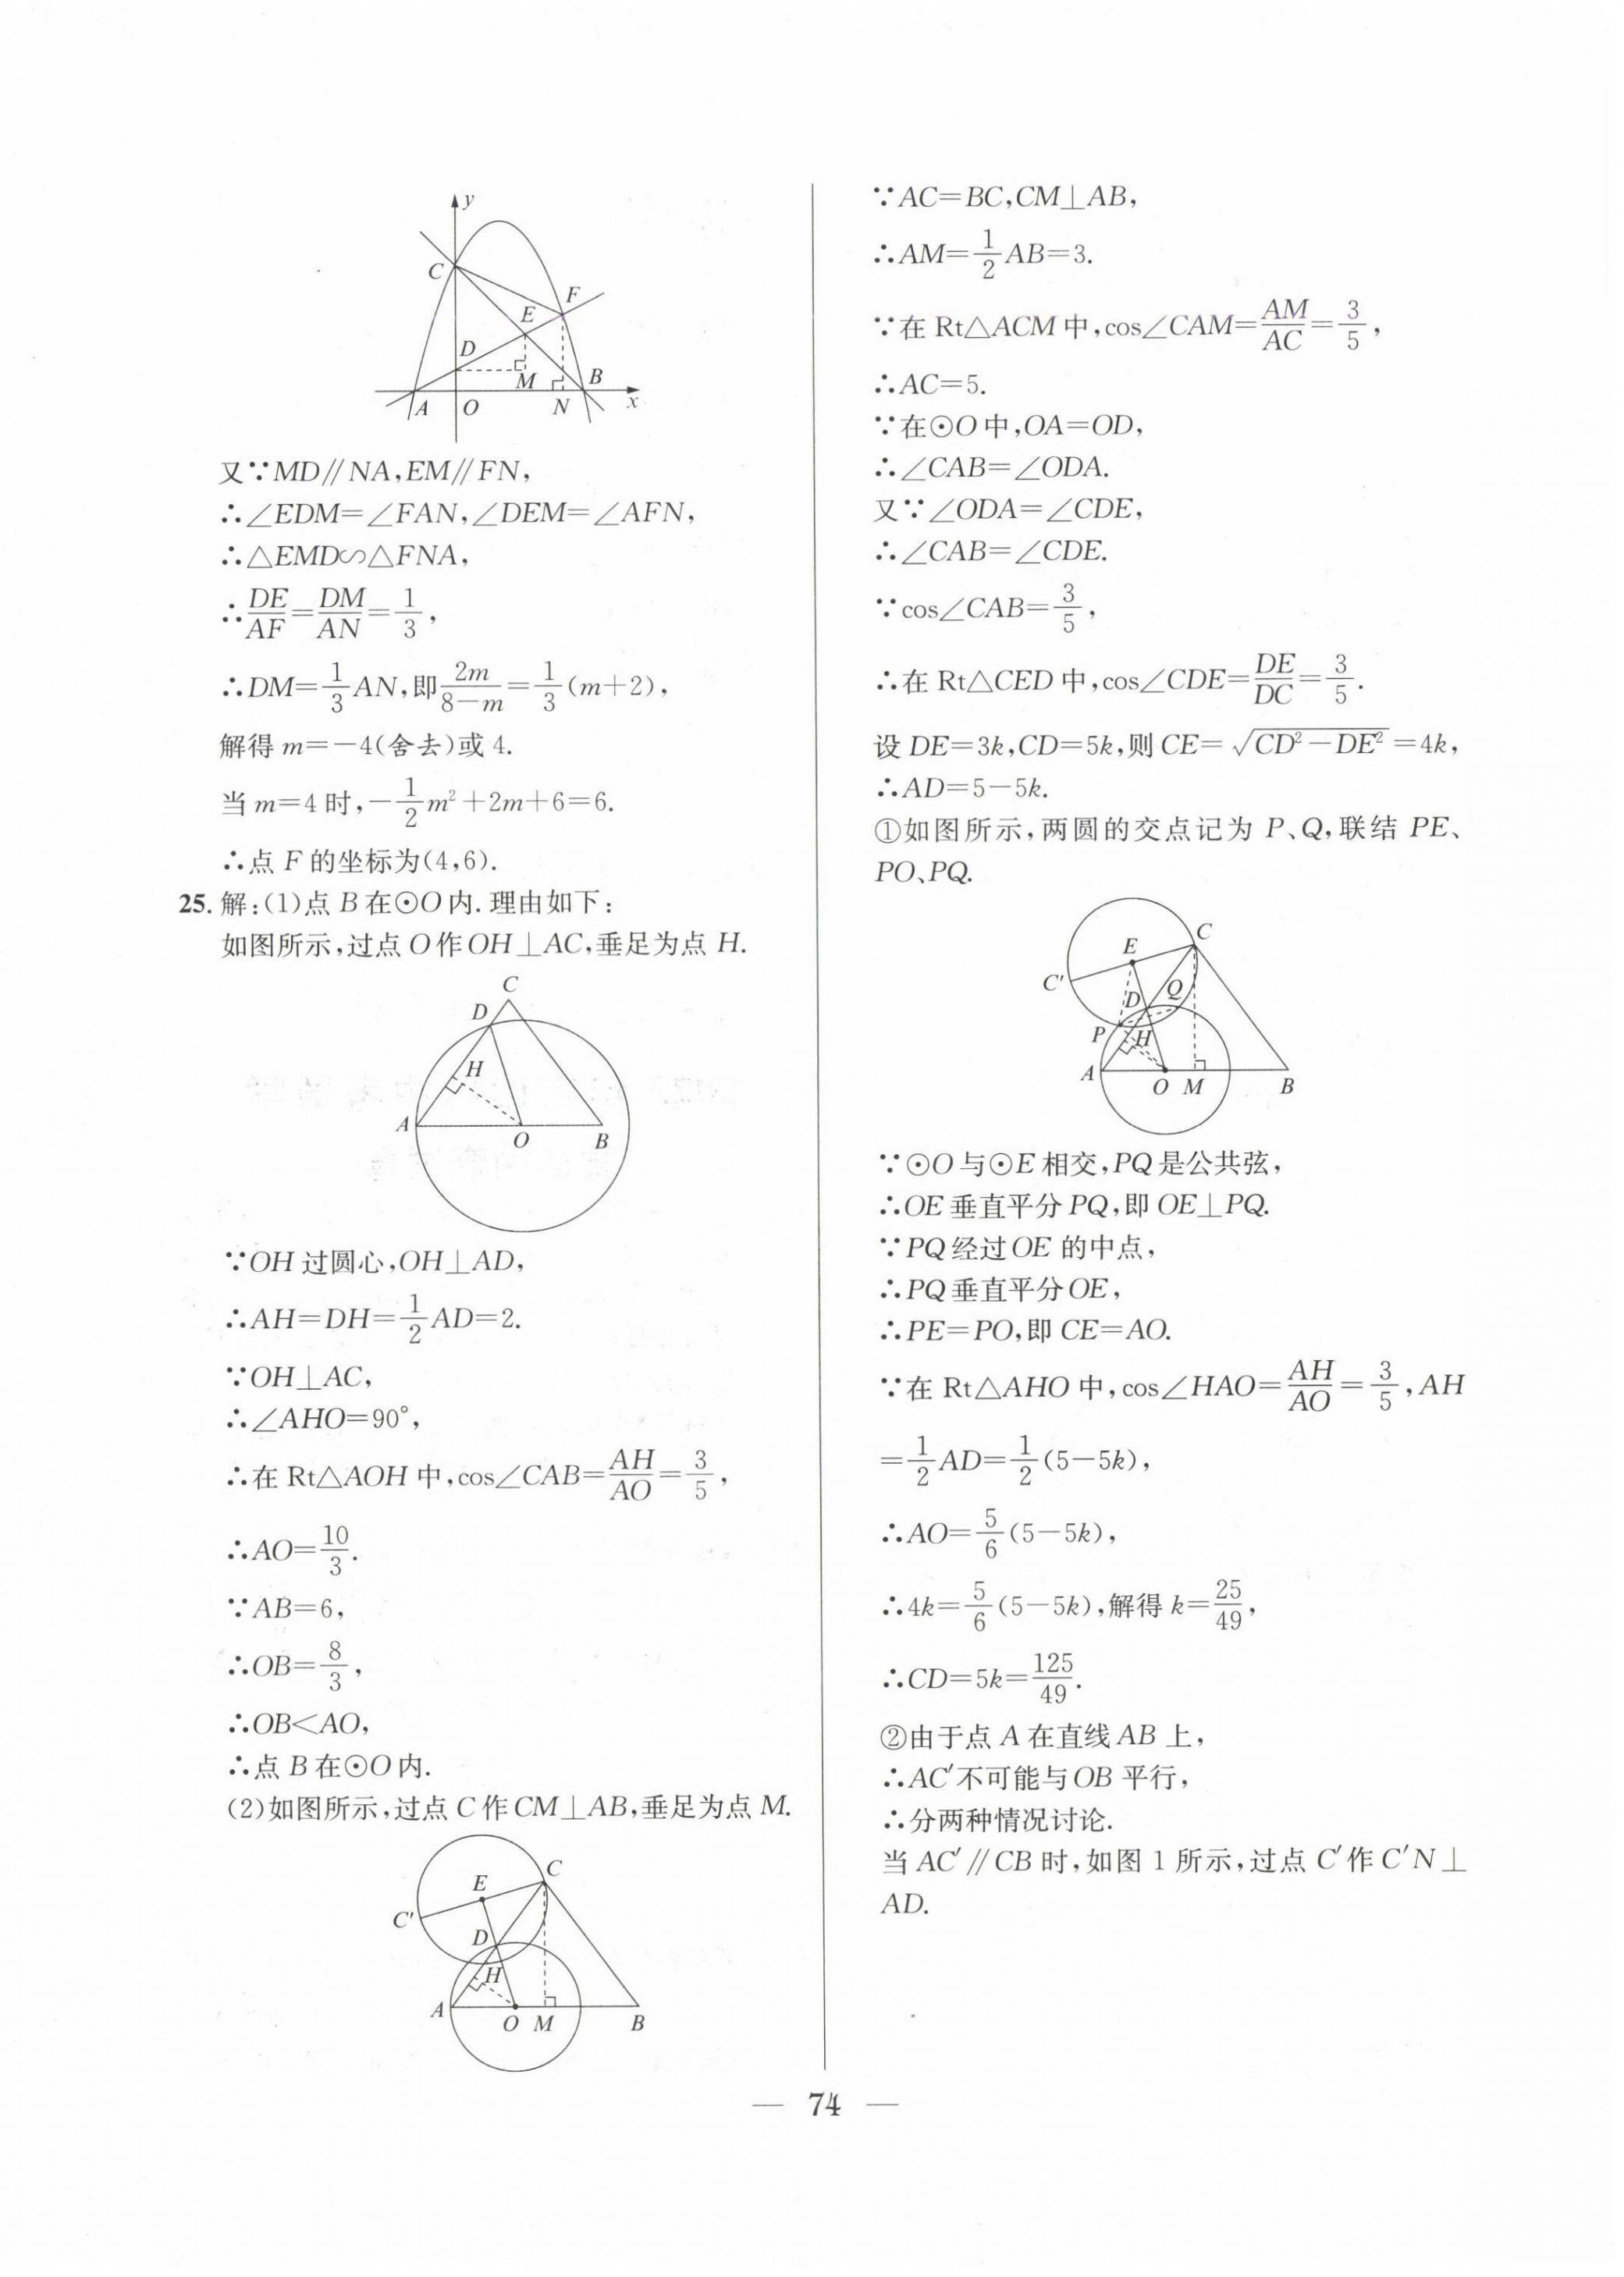 y
C
F
E
D
M
B
A
O
N
x
又∵MD∥NA,EM∥FN,
∴∠EDM=∠FAN,∠DEM=∠AFN,
∴△EMD∽△FNA,
∴DE/AF=DM/AN=1/3,
∴DM=1/3AN,即2m/(8−m)=1/3(m+2),
解得m=−4(舍去)或4.
当m=4时,−1/2m²+2m+6=6.
∴点F的坐标为(4,6).
25. 解:(1)点B在⊙O内.理由如下:
如图所示,过点O作OH⊥AC,垂足为点H.
C
D
H
A
O
B
∵OH过圆心,OH⊥AD,
∴AH=DH=1/2AD=2.
∵OH⊥AC,
∴∠AHO=90°,
∴在Rt△AOH中,cos∠CAB=AH/AO=3/5,
∴AO=10/3.
∵AB=6,
∴OB=8/3,
∴OB<AO,
∴点B在⊙O内.
(2)如图所示,过点C作CM⊥AB,垂足为点M.
C
E
C′
D
H
A
O
M
B
∵AC=BC,CM⊥AB,
∴AM=1/2AB=3.
∵在Rt△ACM中,cos∠CAM=AM/AC=3/5,
∴AC=5.
∵在⊙O中,OA=OD,
∴∠CAB=∠ODA.
又∵∠ODA=∠CDE,
∴∠CAB=∠CDE.
∵cos∠CAB=3/5,
∴在Rt△CED中,cos∠CDE=DE/DC=3/5.
设DE=3k,CD=5k,则CE=√(CD²−DE²)=4k,
∴AD=5−5k.
①如图所示,两圆的交点记为P、Q,联结PE、
PO、PQ.
C
E
C′
Q
D
P
H
A
O
M
B
∵⊙O与⊙E相交,PQ是公共弦,
∴OE垂直平分PQ,即OE⊥PQ.
∵PQ经过OE的中点,
∴PQ垂直平分OE,
∴PE=PO,即CE=AO.
∵在Rt△AHO中,cos∠HAO=AH/AO=3/5,AH
=1/2AD=1/2(5−5k),
∴AO=5/6(5−5k),
∴4k=5/6(5−5k),解得k=25/49,
∴CD=5k=125/49.
②由于点A在直线AB上,
∴AC′不可能与OB平行,
∴分两种情况讨论.
当AC′∥CB时,如图1所示,过点C′作C′N⊥
AD.
— 74 —